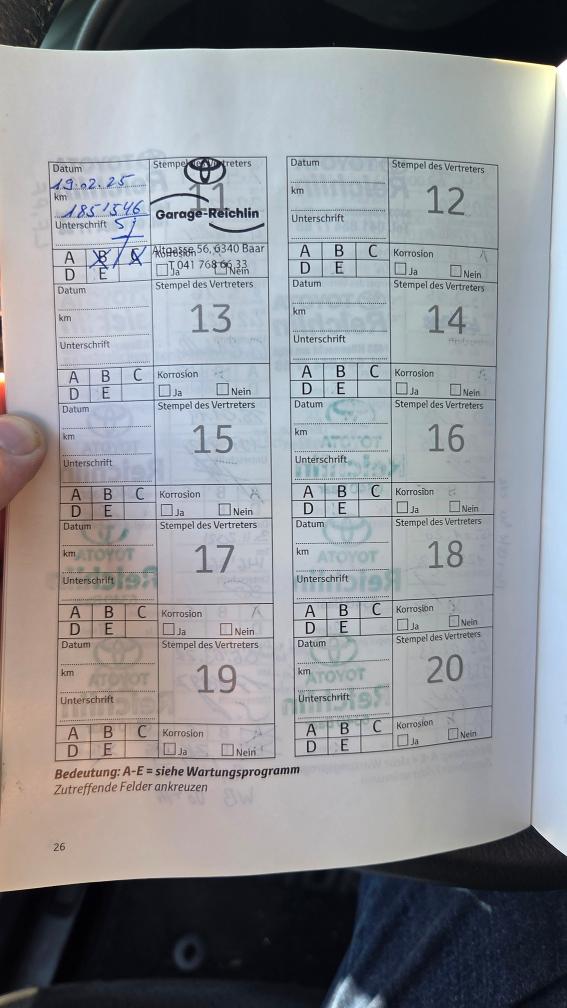 Datum
Stempel des Vertreters
19.02.25
11
km
185'546
Garage-Reichlin
Unterschrift
Altgasse 56, 6340 Baar
T 041 768 66 33
A B C
Korrosion
D E
Ja Nein
Datum
Stempel des Vertreters
km
12
Unterschrift
A B C
Korrosion
D E
Ja Nein
Datum
Stempel des Vertreters
km
13
Unterschrift
A B C
Korrosion
D E
Ja Nein
Datum
Stempel des Vertreters
km
14
Unterschrift
A B C
Korrosion
D E
Ja Nein
Datum
Stempel des Vertreters
km
15
Unterschrift
A B C
Korrosion
D E
Ja Nein
Datum
Stempel des Vertreters
km
16
Unterschrift
A B C
Korrosion
D E
Ja Nein
Datum
Stempel des Vertreters
km
17
Unterschrift
A B C
Korrosion
D E
Ja Nein
Datum
Stempel des Vertreters
km
18
Unterschrift
A B C
Korrosion
D E
Ja Nein
Datum
Stempel des Vertreters
km
19
Unterschrift
A B C
Korrosion
D E
Ja Nein
Datum
Stempel des Vertreters
km
20
Unterschrift
A B C
Korrosion
D E
Ja Nein
Bedeutung: A-E = siehe Wartungsprogramm
Zutreffende Felder ankreuzen
26